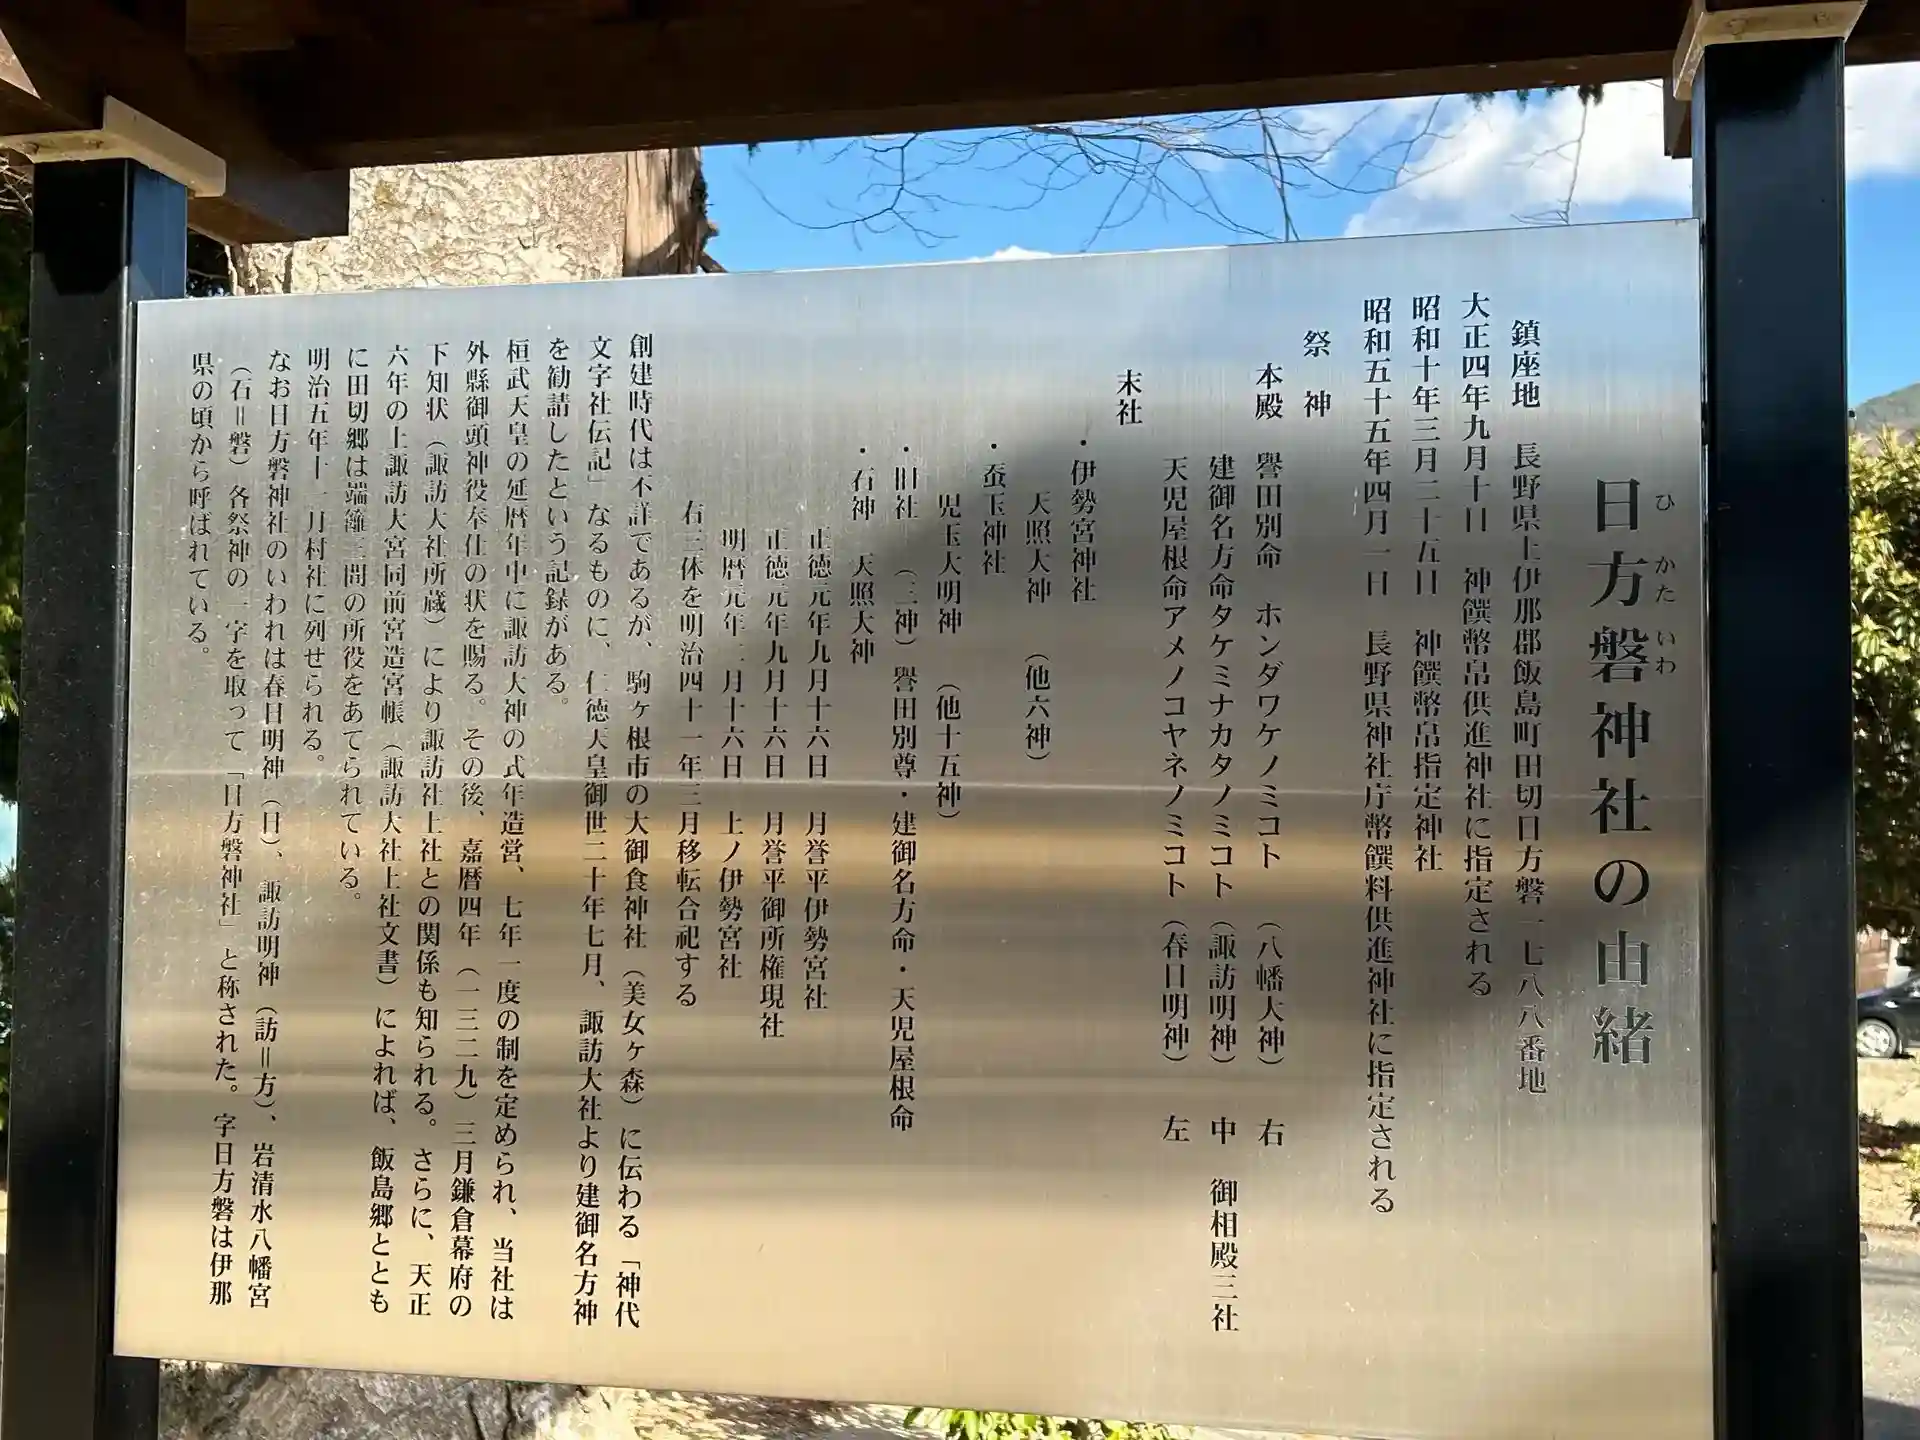 日方磐神社の由緒
ひかたいわ
鎮座地　長野県上伊那郡飯島町田切日方磐一七八八番地
大正四年九月十日　神饌幣帛供進神社に指定される
昭和十年三月二十五日　神饌幣帛指定神社
昭和五十五年四月一日　長野県神社庁幣饌料供進神社に指定される
祭　神
本殿　譽田別命　ホンダワケノミコト　（八幡大神）　右
建御名方命タケミナカタノミコト（諏訪明神）　中　御相殿三社
天児屋根命アメノコヤネノミコト（春日明神）　左
末社
・伊勢宮神社
天照大神　（他六神）
・蚕玉神社
児玉大明神　（他十五神）
・旧社　（三神）譽田別尊・建御名方命・天児屋根命
・石神　天照大神
正徳元年九月十六日　月誉平伊勢宮社
正徳元年九月十六日　月誉平御所権現社
明暦元年二月十六日　上ノ伊勢宮社
右三体を明治四十一年三月移転合祀する
創建時代は不詳であるが、駒ヶ根市の大御食神社（美女ヶ森）に伝わる「神代
文字社伝記」なるものに、仁徳天皇御世二十年七月、諏訪大社より建御名方神
を勧請したという記録がある。
桓武天皇の延暦年中に諏訪大神の式年造営、七年一度の制を定められ、当社は
外縣御頭神役奉仕の状を賜る。その後、嘉暦四年（一三二九）三月鎌倉幕府の
下知状（諏訪大社所蔵）により諏訪社上社との関係も知られる。さらに、天正
六年の上諏訪大宮同前宮造宮帳（諏訪大社上社文書）によれば、飯島郷ととも
に田切郷は端籬三間の所役をあてられている。
明治五年十一月村社に列せられる。
なお日方磐神社のいわれは春日明神（日）、諏訪明神（訪＝方）、岩清水八幡宮
（石＝磐）各祭神の一字を取って「日方磐神社」と称された。字日方磐は伊那
県の頃から呼ばれている。